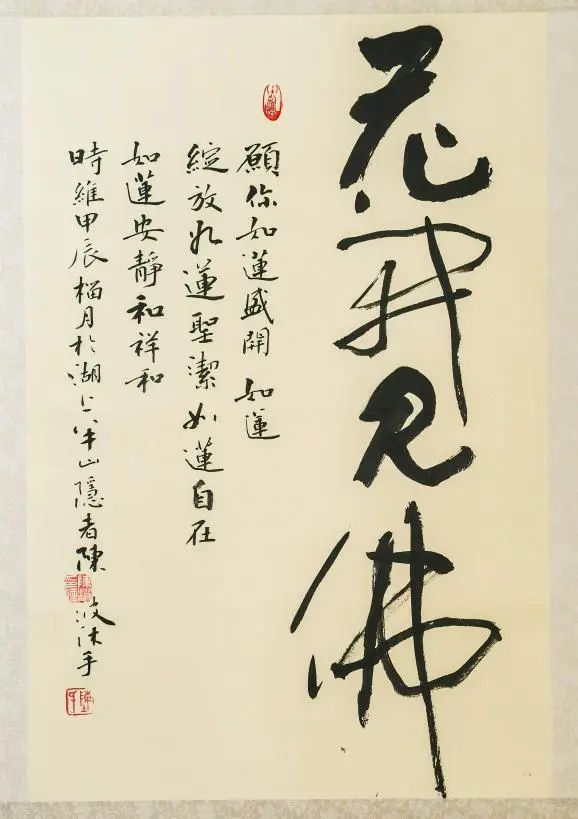 花開見佛
願你如蓮盛開如蓮
綻放如蓮聖潔如蓮自在
如蓮安靜和祥和
時維甲辰榴月於湖上半山隱者陳波沐手